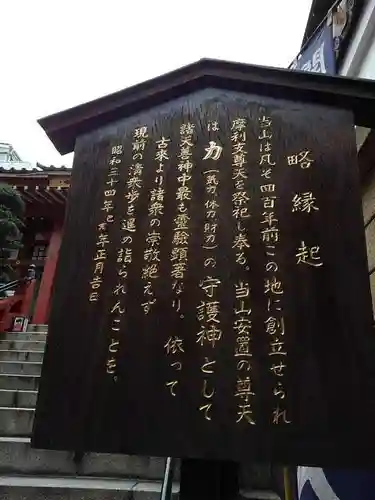 略縁起
当山は凡そ四百年前この地に創立せられ
摩利支尊天を祭祀し奉る。当山安置の尊天
は 力(気力、体力、財力)の守護神として
諸天善神中最も霊験顕著なり。依って
古来より諸衆の宗敬絶えず
現前の満衆歩を運の詣られんことを。
昭和三十四年己亥年正月吉日